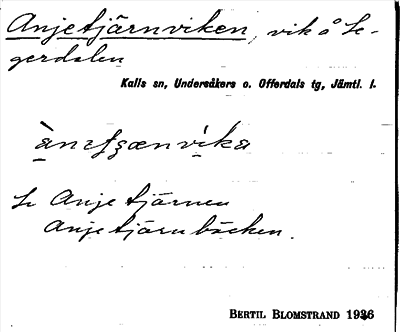 Anjetjärnviken, vik å Le-
gerdalen
Kalls sn, Undersåkers o. Offerdals tg, Jämtl. l.
Se Anjetjärnen
Anjetjärnbäcken.
BERTIL BLOMSTRAND 1936